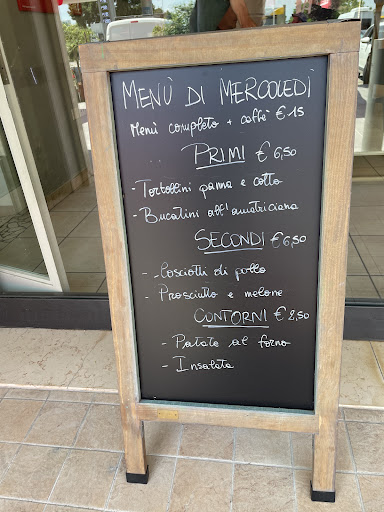 MENÙ DI MERCOLEDÌ
Menù completo + caffè € 15
PRIMI € 6,50
- Tortellini panna e cotto
- Bucatini all'amatriciana
SECONDI € 6,50
- Cosciotti di pollo
- Prosciutto e melone
CONTORNI € 2,50
- Patate al forno
- Insalata